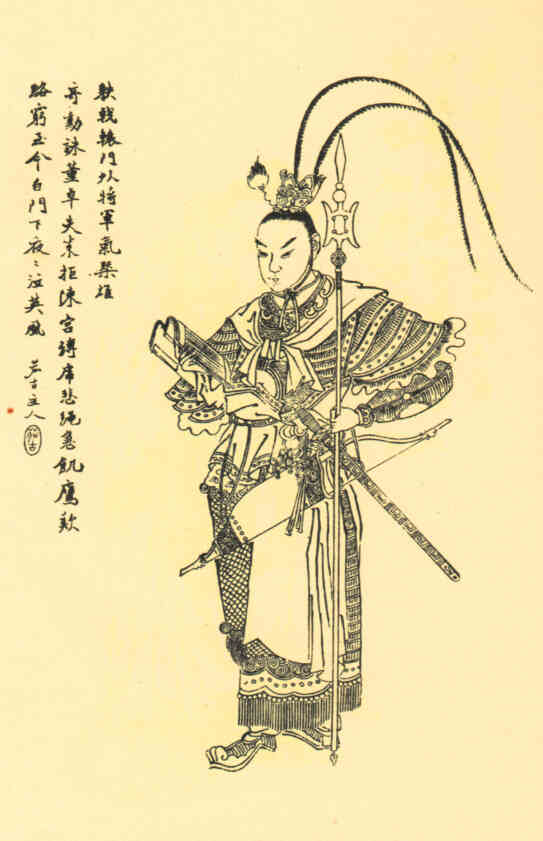 執戟轅門外將軍氣槩雄
奇勳誅董卓失策拒陳宮縛虎悲繩急飢鷹歎
路窮至今白門下夜〻泣英風 主人